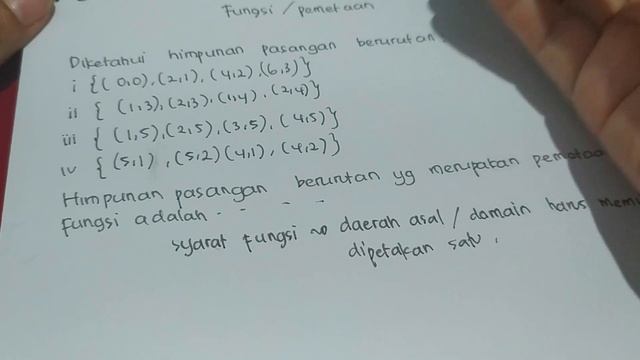 Fungsi / pemetaan
Diketahui himpunan pasangan berurutan
i {(0,0), (2,1), (4,2), (6,3)}
ii { (1,3), (2,3), (1,4), (2,4)}
iii { (1,5), (2,5), (3,5), (4,5)}
iv { (5,1), (5,2) (4,1), (4,2)}
Himpunan pasangan berurutan yg merupakan pemetaa
Fungsi adalah - - - -
syarat fungsi ~> daerah asal / domain harus memi
dipetakan satu.